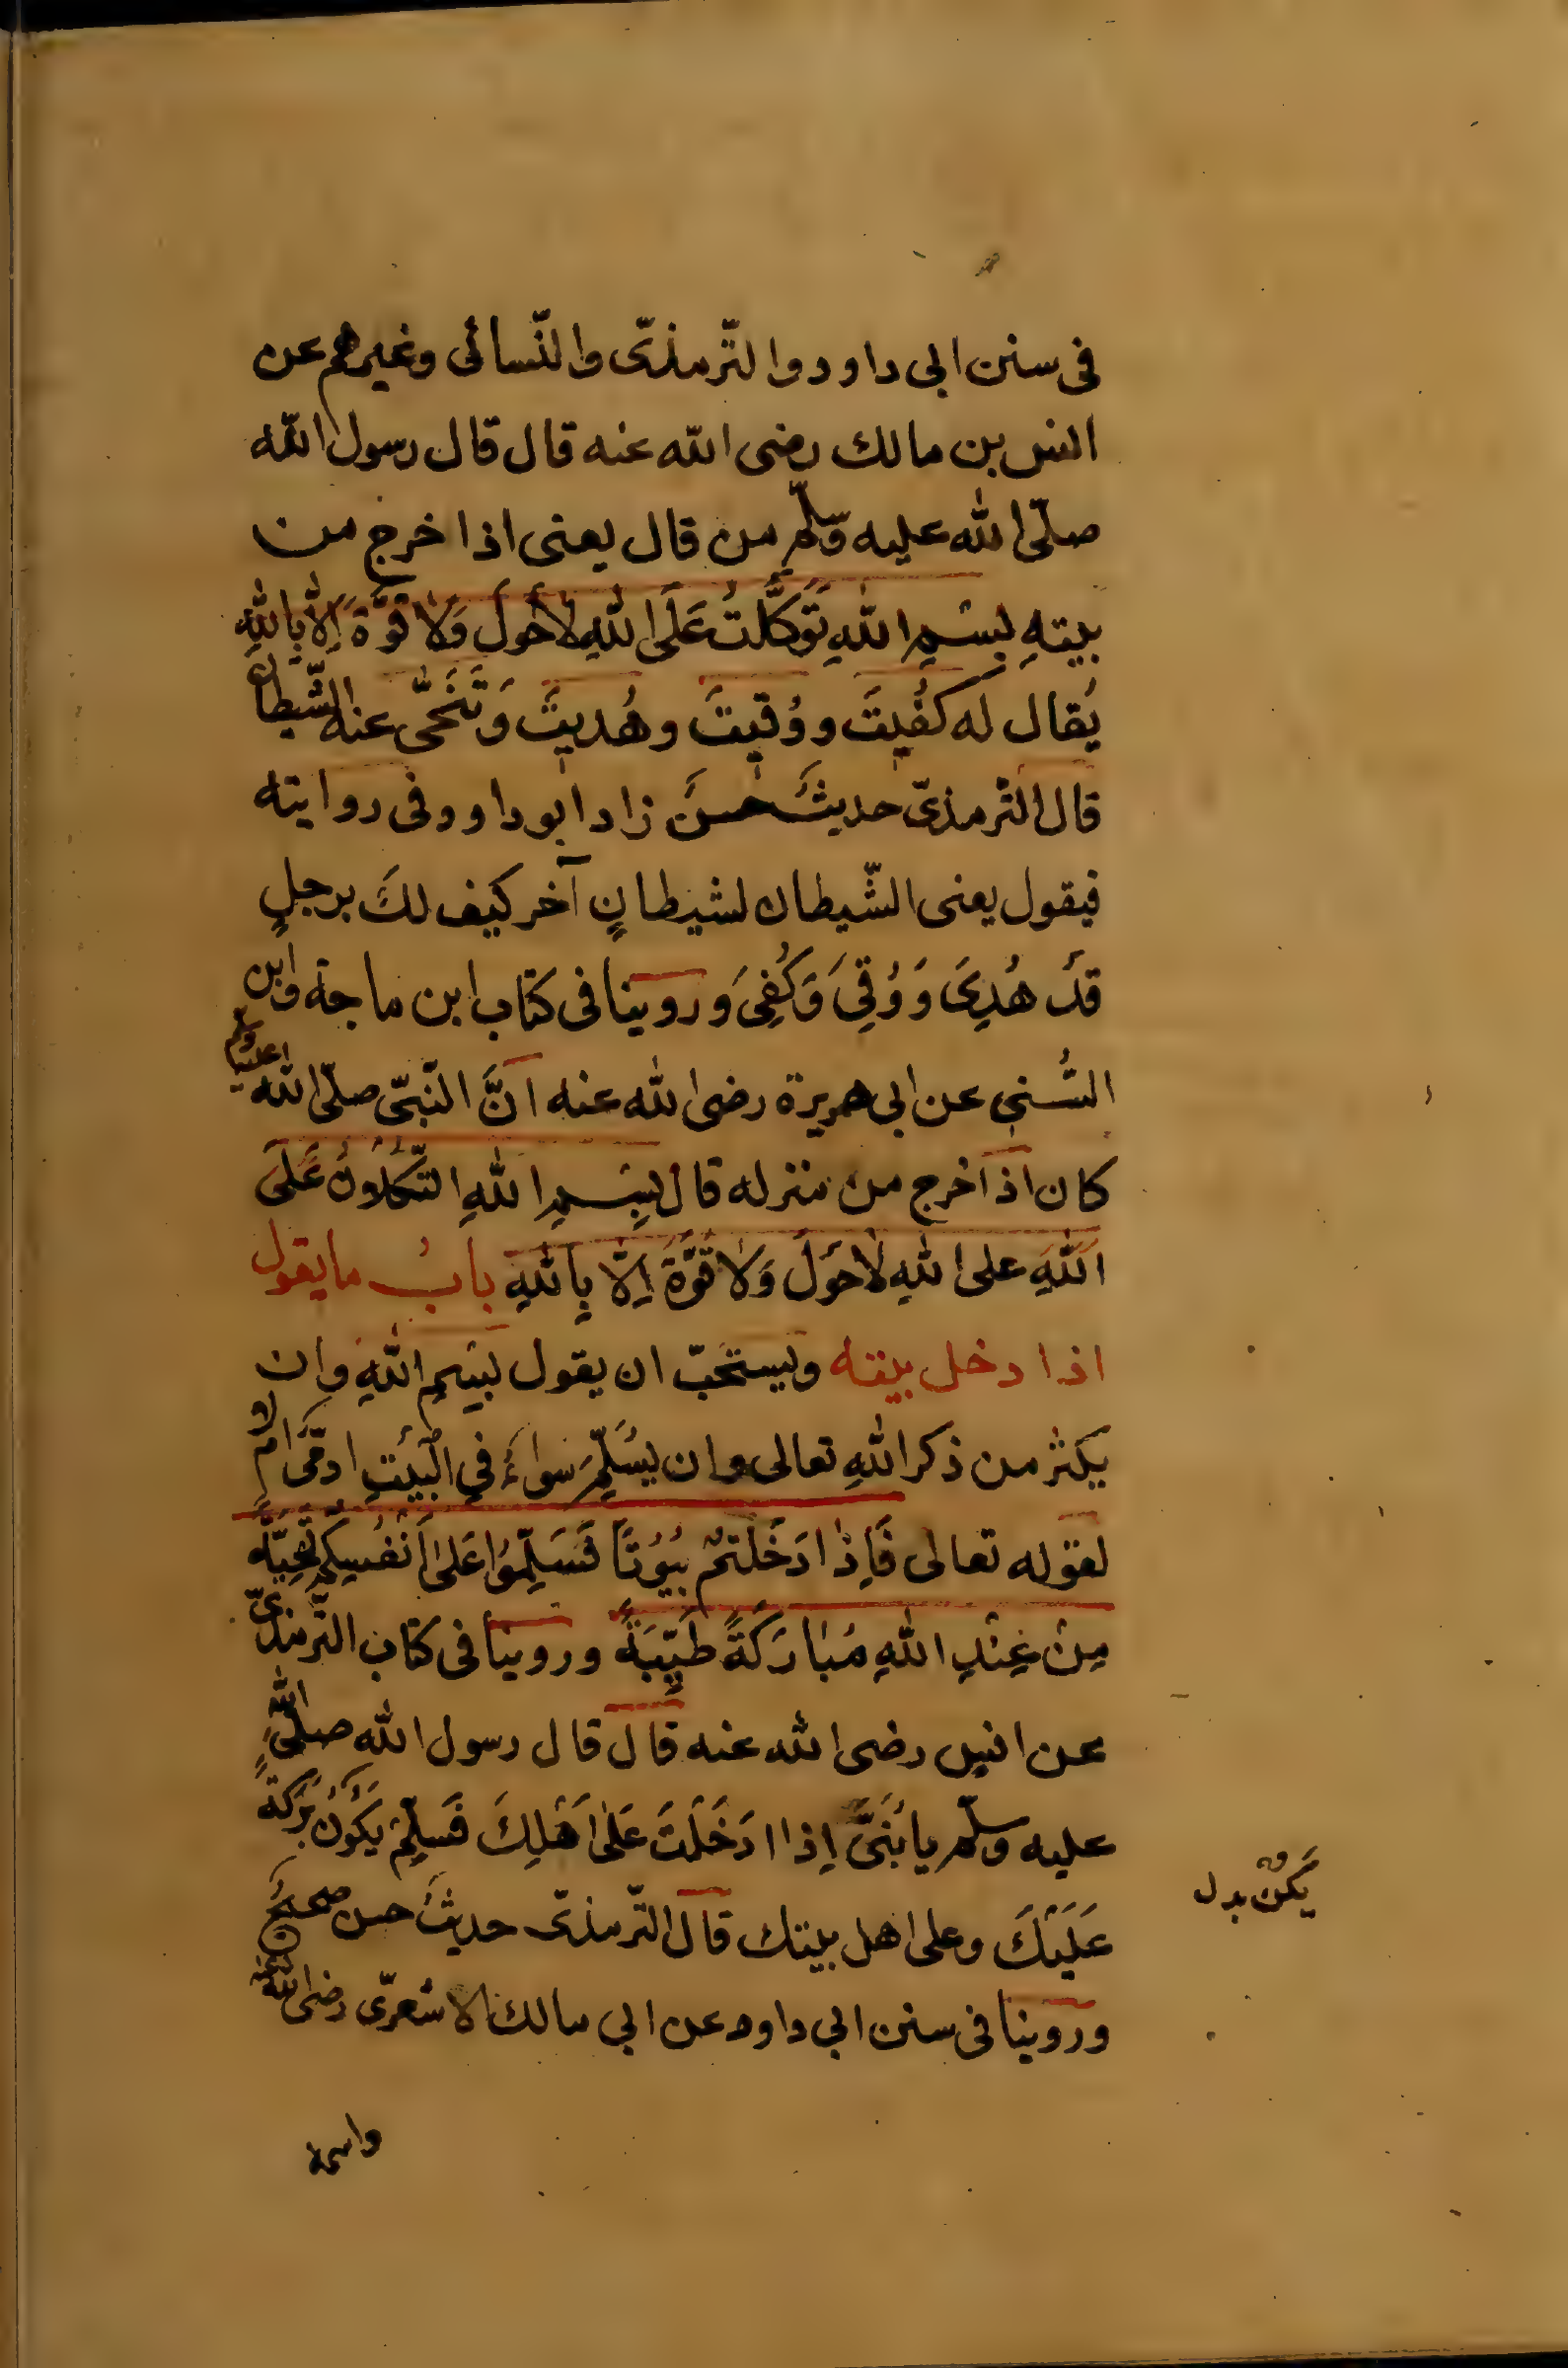 فى سنن ابى داود والتّرمذىّ والنّسائى وغيرهم عن
انس بن مالك رضى الله عنه قال قال رسول الله
صلّى الله عليه وسلّم من قال يعنى اذا خرج من
بيتهِ بِسْمِ اللهِ تَوَكَّلْتُ عَلَى اللهِ لاحَولَ وَلا قوَّةَ اِلّا بِاللهِ
يُقال له كُفيتَ ووُقيتَ وهُديتَ وَتَنَحّى عنه الشّيطان
قال التّرمذىّ حديثٌ حسنٌ زاد ابو داوود فى روايته
فيقول يعنى الشّيطان لشيطانٍ آخر كيف لكَ برجلٍ
قدْ هُدِىَ وَوُقِىَ وَكُفِىَ وروينا فى كتاب ابن ماجة وابن
السُّنى عن ابى هريرة رضى الله عنه انَّ النّبىّ صلّى الله عليه وسلم
كان اذا خرج من منزله قال بِسْمِ اللهِ التُّكْلَانُ عَلَى
اللهِ على اللهِ لاحَوْلَ وَلا قُوَّةَ اِلّا بِاللهِ بابُ ما يقول
اذا دخل بيته ويستحَبّ ان يقول بِسْمِ اللهِ وان
يكثر من ذكر اللهِ تعالى وان يُسَلِّمَ سواءٌ فى البَيْتِ ادمىٌّ ام لا
لقوله تعالى فَاِذا دَخَلْتُمْ بُيُوتًا فَسَلِّمُوا عَلى اَنْفُسِكُمْ تَحِيَّةً
مِنْ عِنْدِ اللهِ مُبَارَكَةً طَيِّبَةً وروينا فى كتاب التّرمذىّ
عن انس رضى الله عنه قال قال رسول الله صلّى الله
عليه وسلّم يا بُنَىَّ اِذا ادَخَلْتَ عَلى اَهْلِكَ فَسَلِّمْ يَكُونُ بَرَكَةً
عَلَيْكَ وعلى اهل بيتك قال التّرمذىّ حديثٌ حسن صحيحٌ
وروينا فى سنن ابى داود عن ابى مالك الاشعرىّ رضى الله عنه
يَكُنْ بدل
واسمه